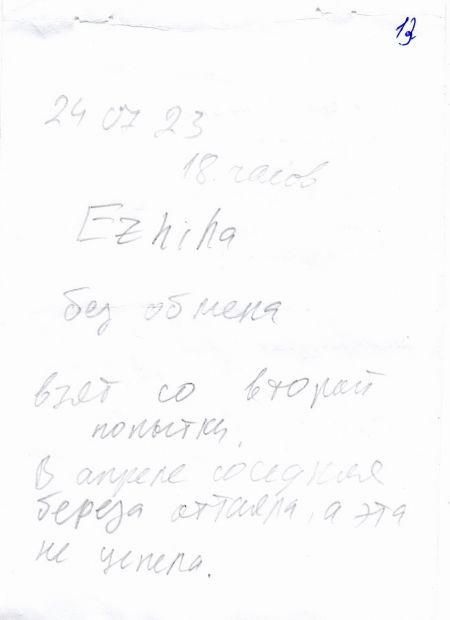 12
24 07 23
18 часов
Ezhiha
без обмена
взят со второй
попытки.
В апреле соседняя
береза оттаяла, а эта
не успела.